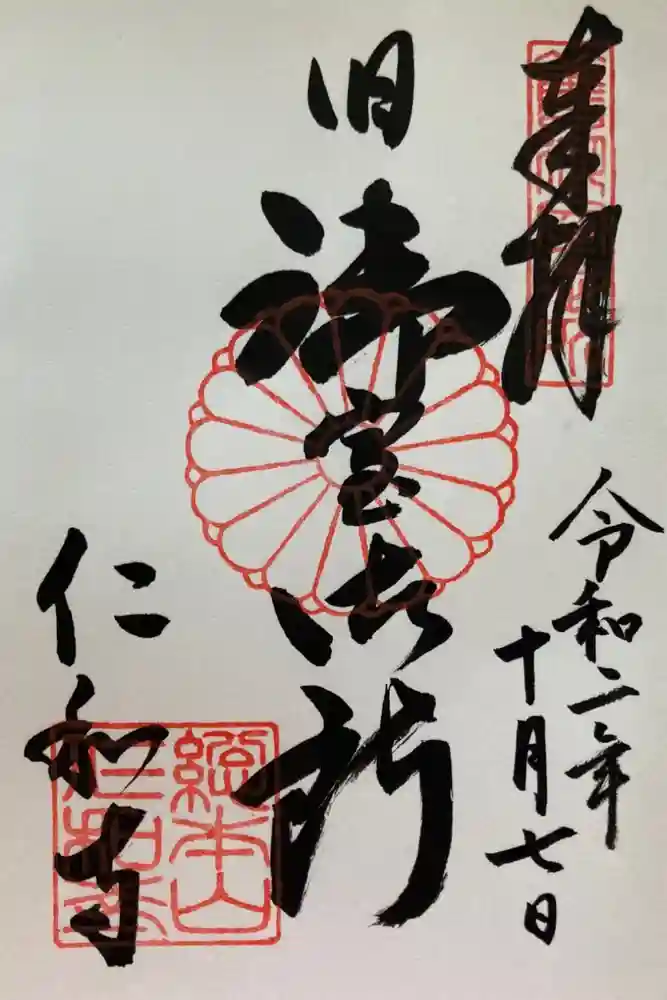 奉拝
令和二年
十月七日
旧御室御所
仁和寺
総本山
仁和寺